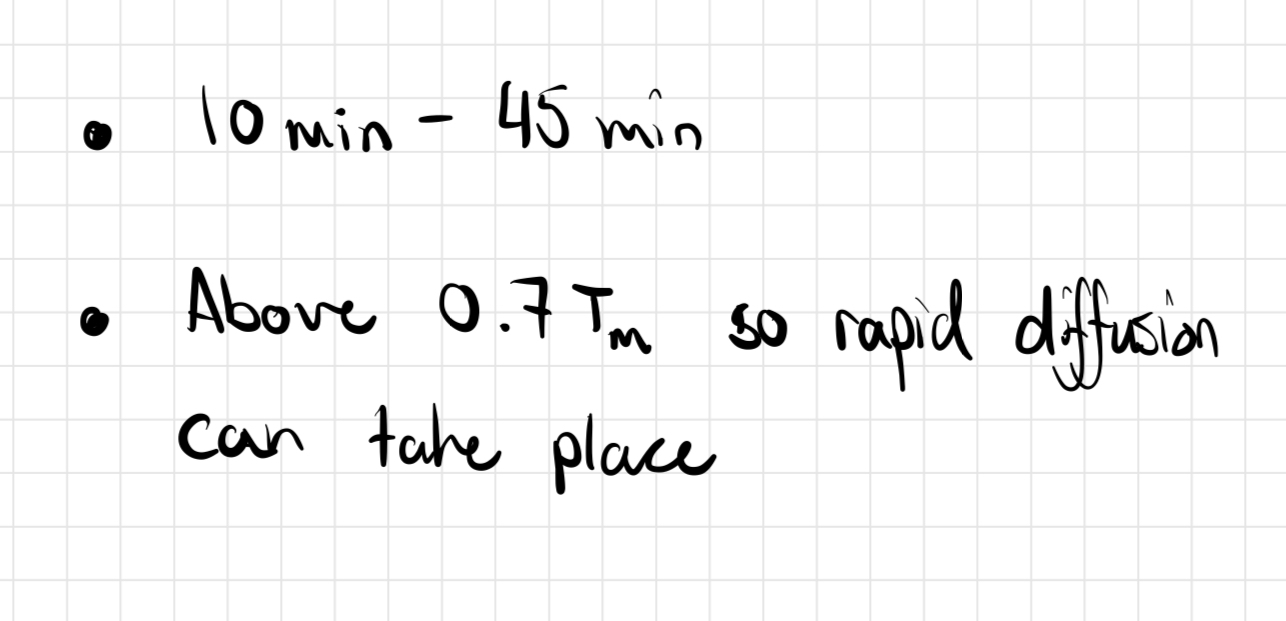 • 10 min - 45 min
• Above 0.7 Tm so rapid diffusion
can take place